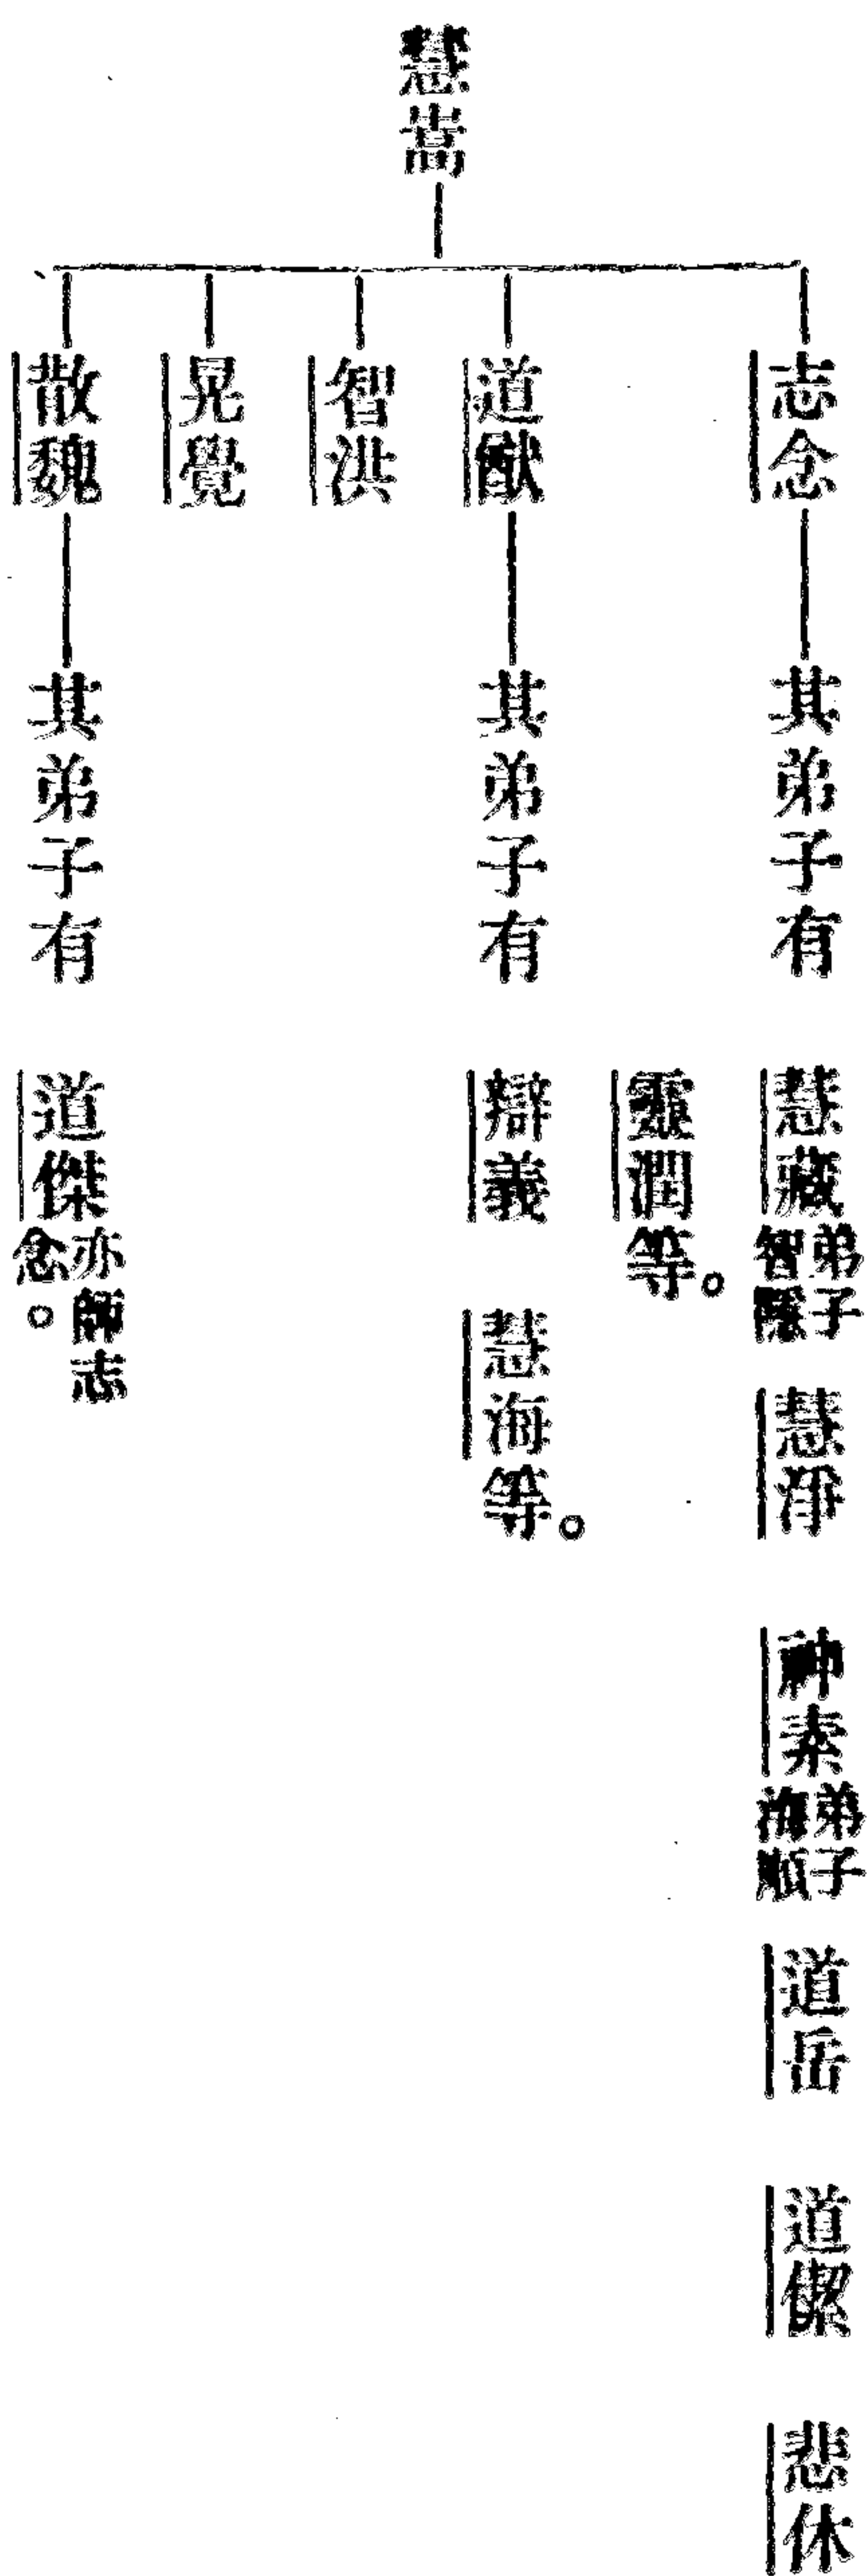 慧嵩
志念 其弟子有 慧藏 弟子智隱 慧淨 神素 弟子海順 道岳 道 悲休
靈潤等。
道猷 其弟子有 辯義 慧海等。
智洪
晃覺
散魏 其弟子有 道傑 亦師志念。